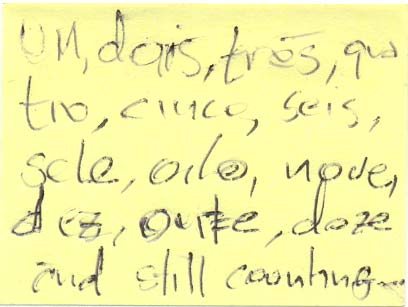 UM, dois, três, qua
tro, cinco, seis,
sete, oito, nove,
dez, onze, doze
and still counting...